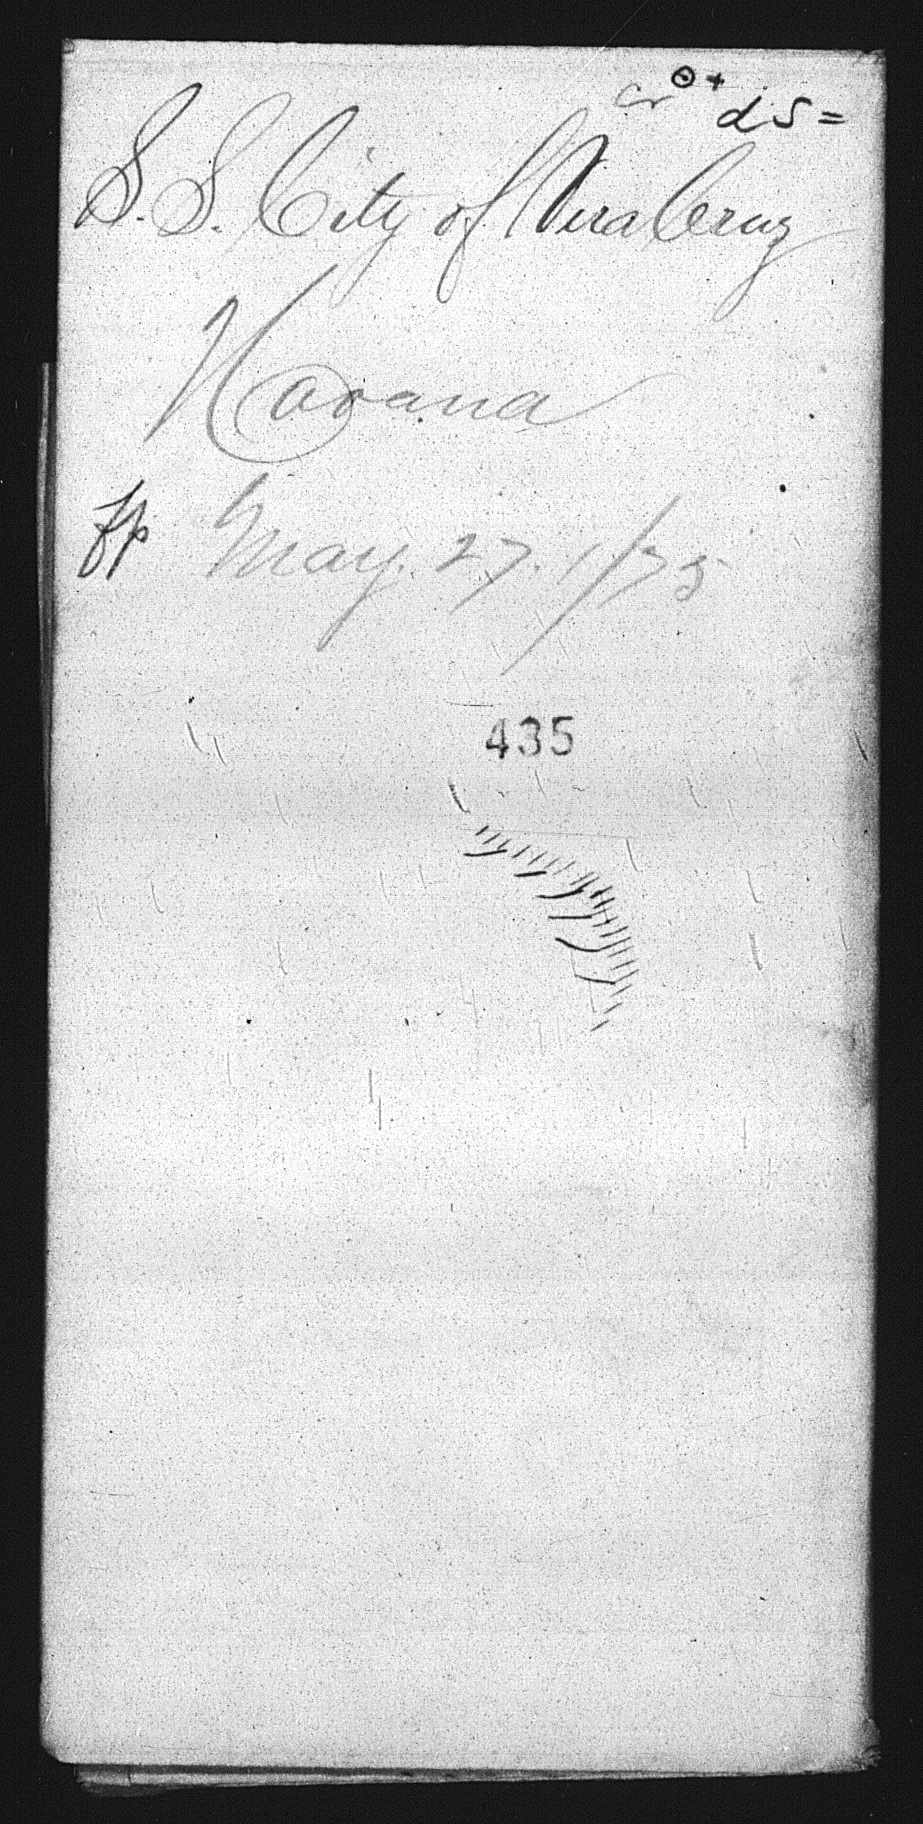 cr ⊙ +
ds =
S. S. City of Vera Cruz
Havana
May. 27. 1/75
435